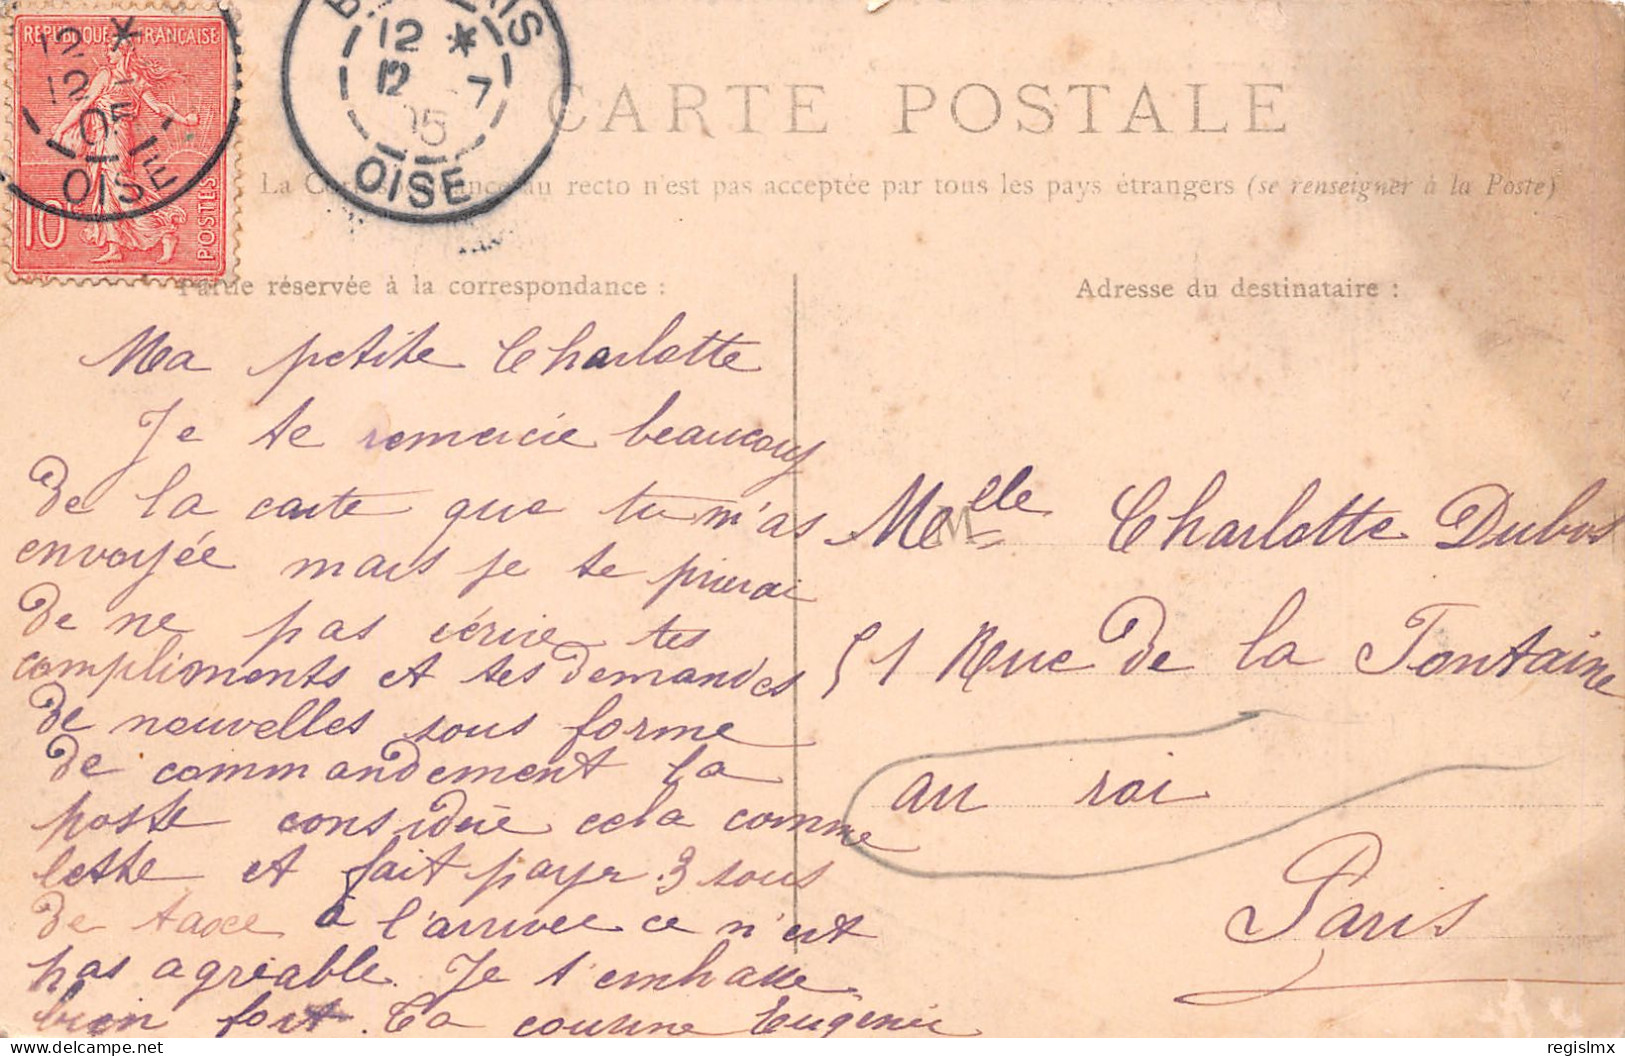 REPUBLIQUE FRANÇAISE
10c
POSTES
12 *
12
05
OISE
12 *
12 7
05
OISE
CARTE POSTALE
La Correspondance au recto n'est pas acceptée par tous les pays étrangers (se renseigner à la Poste)
Partie réservée à la correspondance :
Ma petite Charlotte
Je te remercie beaucoup
de la carte que tu m'as
envoyée mais je te prierai
de ne pas écrire tes
compliments et tes demandes
de nouvelles sous forme
de commandement la
poste considère cela comme
lettre et fait payer 3 sous
de taxe à l'arrivée ce n'est
pas agréable. Je t'embrasse
bien fort. Ta cousine Eugénie
Adresse du destinataire :
M
Melle Charlotte Dubos
51 Rue de la Fontaine
au roi
Paris
regislmx